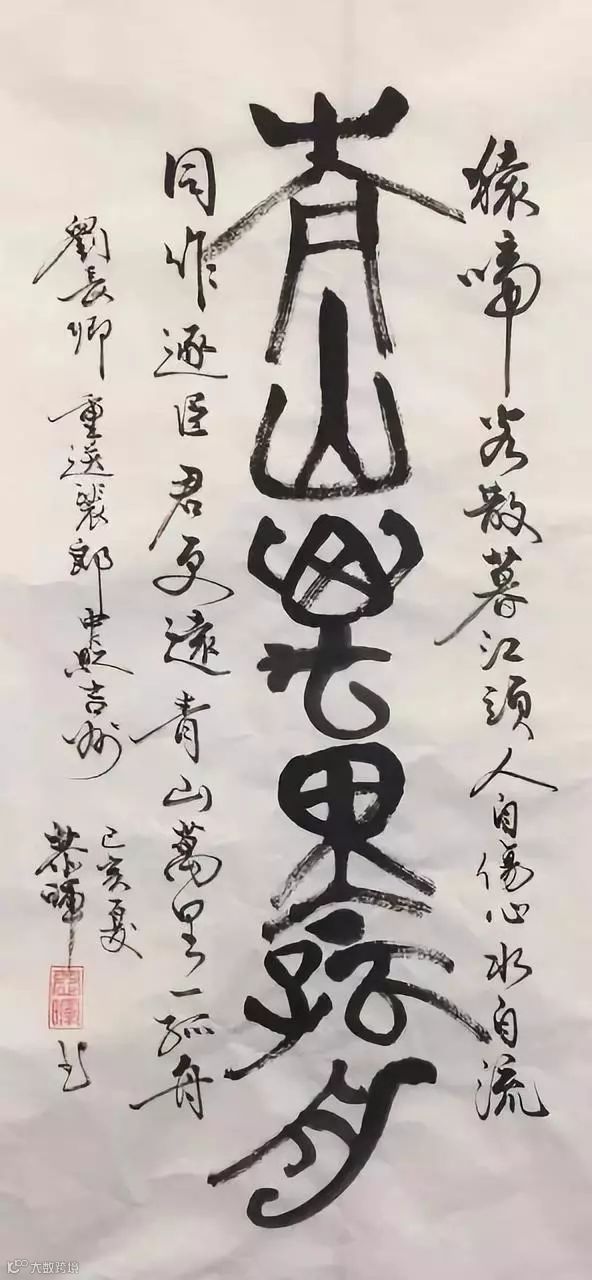 猿啼客散暮江頭人自傷心水自流
青山萬里孤舟
同作逐臣君更遠青山萬里一孤舟
劉長卿重送裴郎中貶吉州
己亥夏
大数跨境